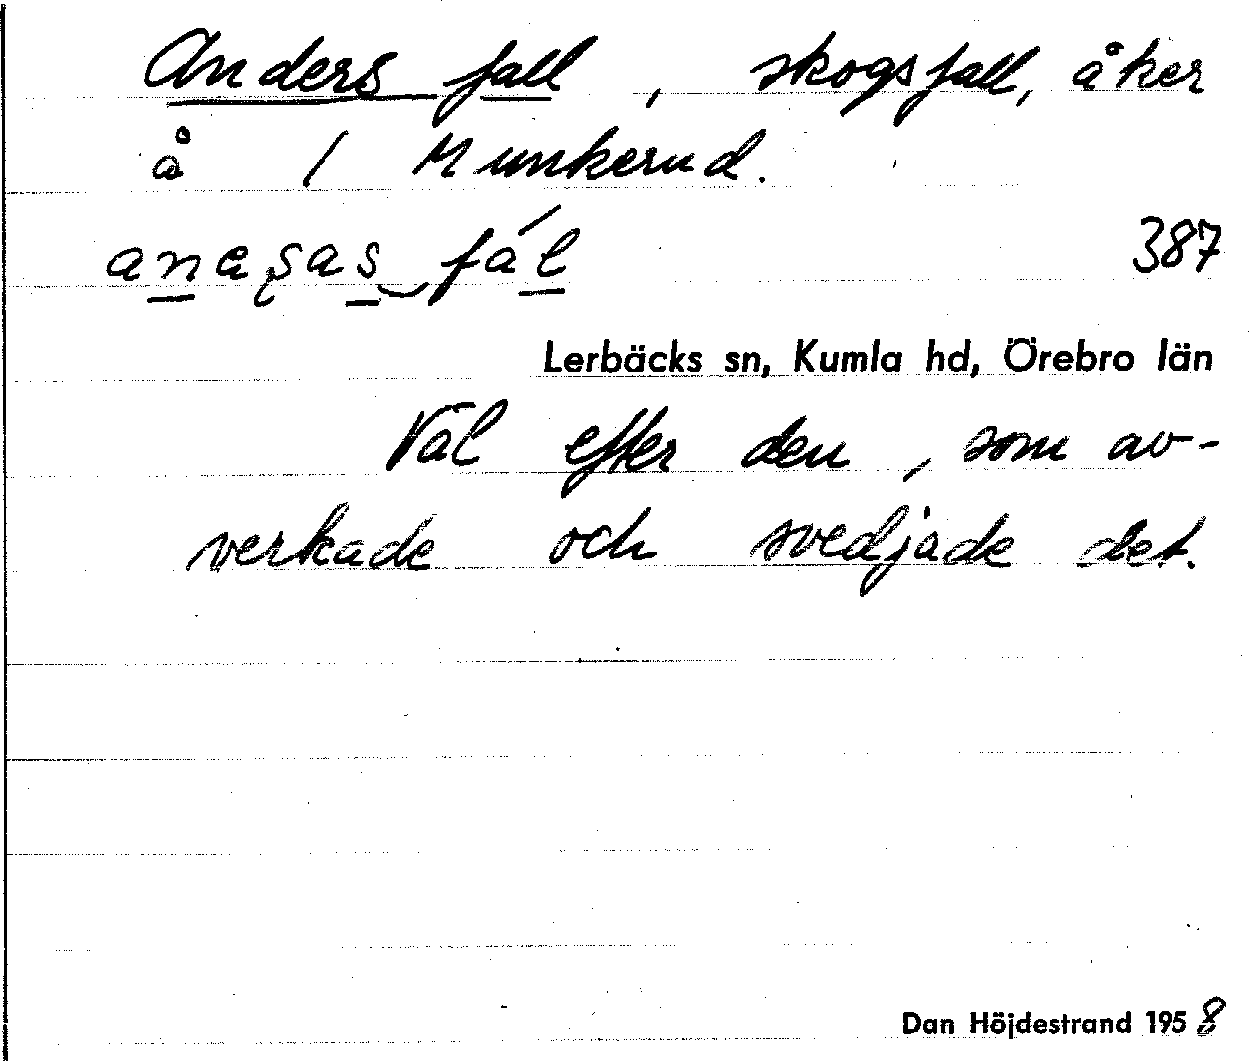 Anders fall, skogsfall, åker
å / Munkerud.
387
Lerbäcks sn, Kumla hd, Örebro län
Väl efter den, som av-
verkade och svedjade det.
Dan Höjdestrand 1958